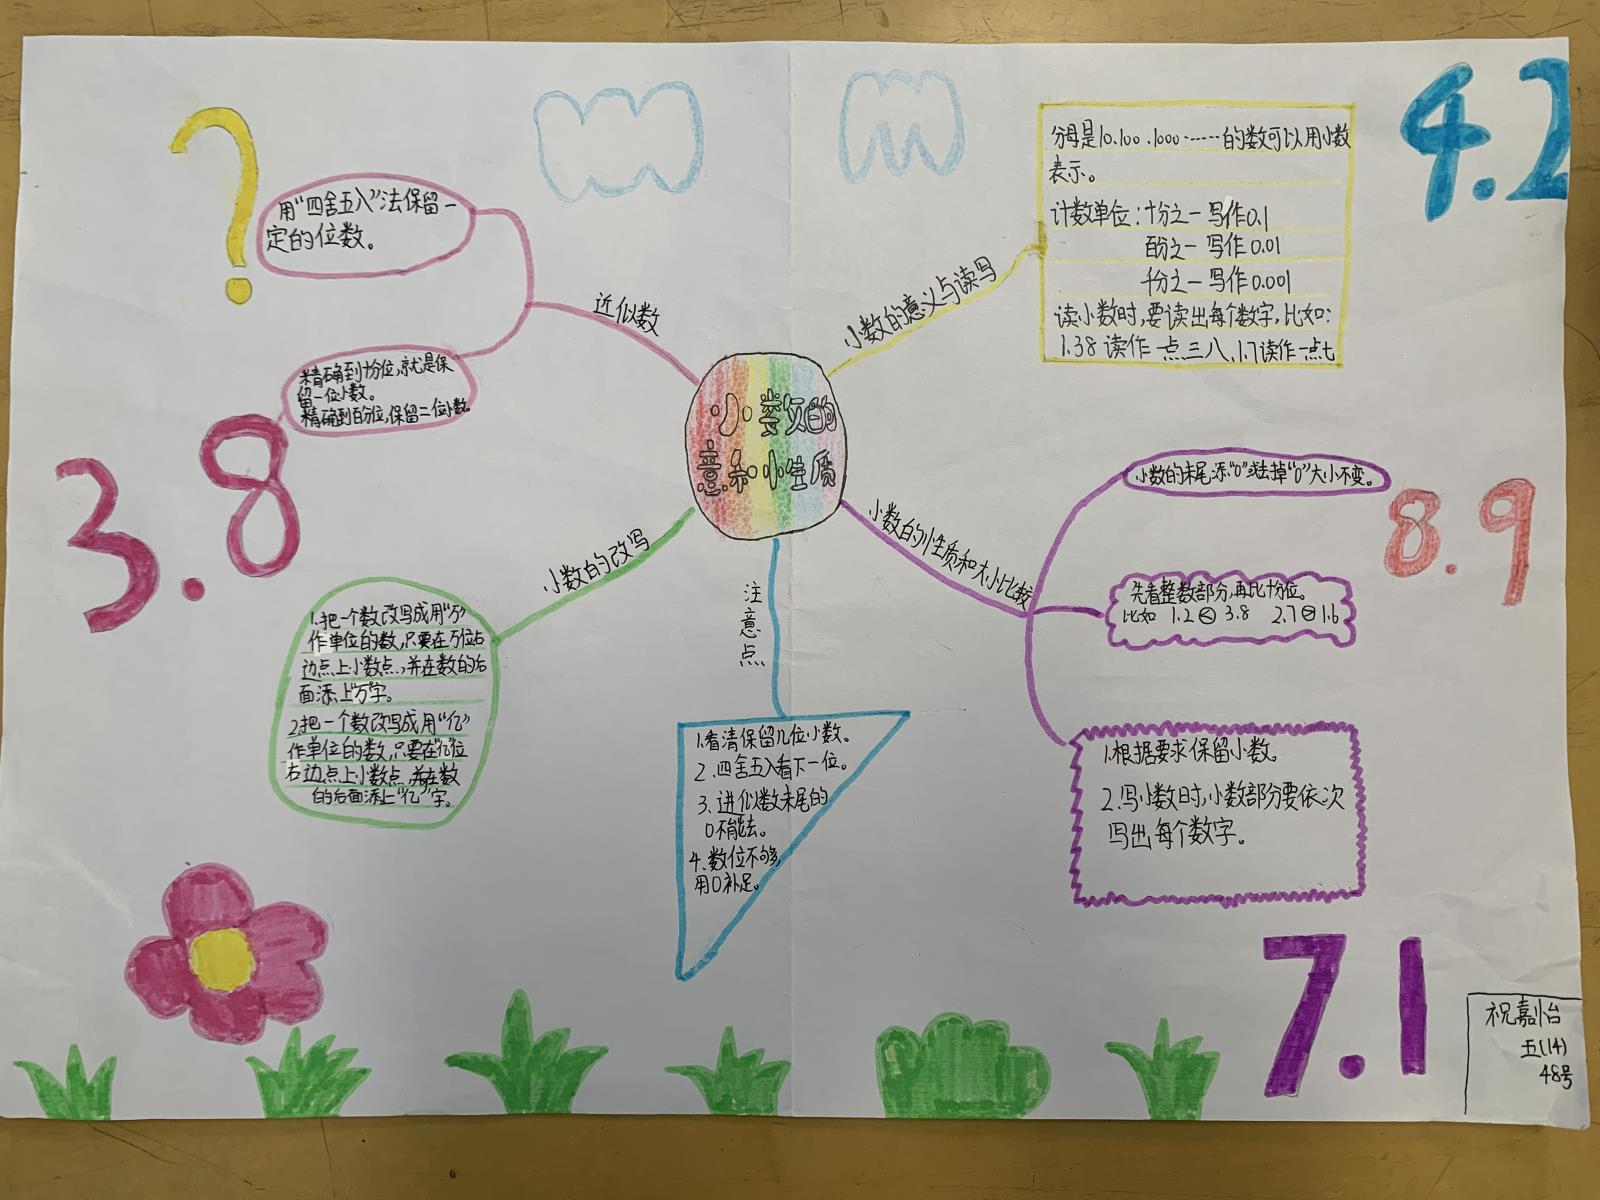 小数的
意和小生质
近似数
用“四舍五入”法保留一
定的位数。
精确到十份位,就是保
留一位小数。
精确到百份位,保留二位小数。
小数的意义与读写
分母是10.100.1000……的数可以用小数
表示。
计数单位:十分之一写作0.1
百分之一写作0.01
千分之一写作0.001
读小数时,要读出每个数字,比如:
1.38读作一点三八,1.7读作一点七
小数的性质和大小比较
小数的末尾添“0”或去掉“0”大小不变。
先看整数部分,再比十份位。
比如 1.2<3.8 2.7>1.6
1.根据要求保留小数。
2.写小数时,小数部分要依次
写出每个数字。
注意点
1.看清保留几位小数。
2.四舍五入看下一位。
3.进似数末尾的
0不能去。
4.数位不够,
用0补足。
小数的改写
1.把一个数改写成用“万”
作单位的数,只要在万位右
边点上小数点,并在数的后
面添上“万”字。
2.把一个数改写成用“亿”
作单位的数,只要在“亿”位
右边点上小数点,并在数
的后面添上“亿”字。
?
3.8
4.2
8.9
7.1
祝嘉怡
五(14)
48号